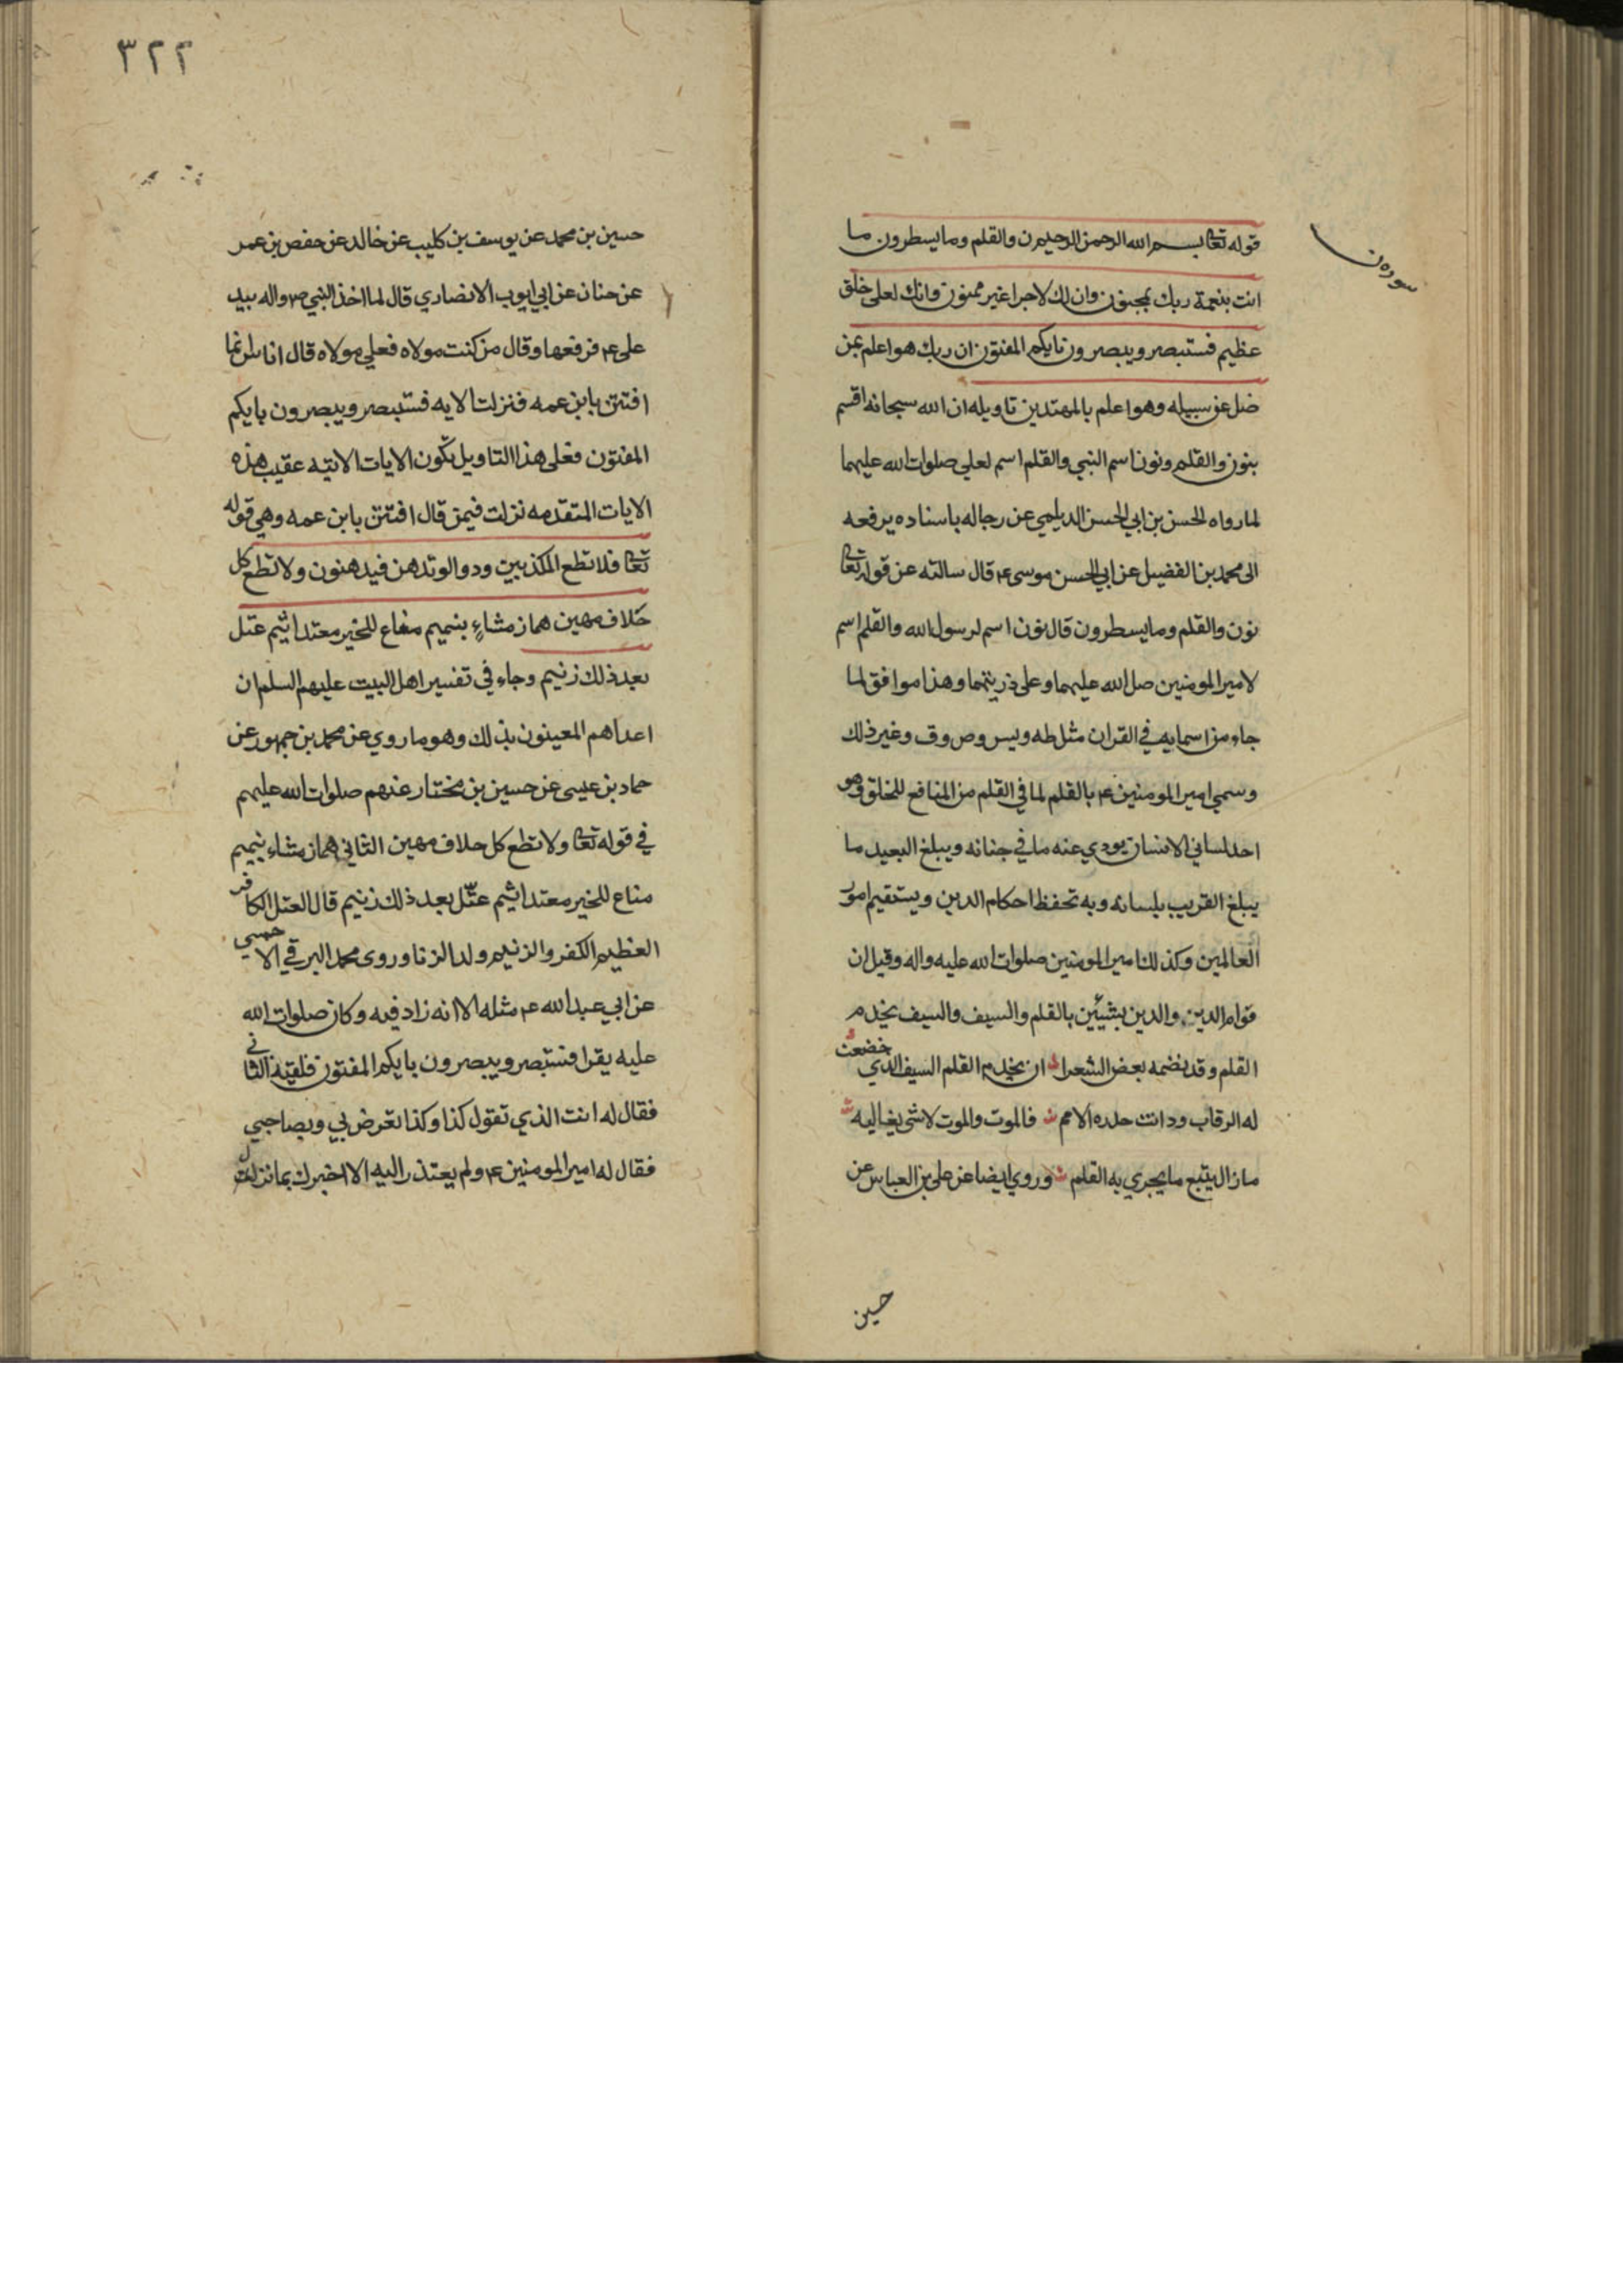 سورة ن
قوله تعا بسم الله الرحمن الرحيم ن والقلم وما يسطرون ما
انت بنعمة ربك بمجنون وان لك لاجرا غير ممنون وانك لعلى خلق
عظيم فستبصر ويبصرون بايكم المفتون ان ربك هو اعلم بمن
ضل عن سبيله وهو اعلم بالمهتدين تاويله ان الله سبحانه اقسم
بنون والقلم ونون اسم النبي والقلم اسم لعلي صلوات الله عليهما
لما رواه الحسن بن ابي الحسن الديلمي عن رجاله باسناده يرفعه
الى محمد بن الفضيل عن ابي الحسن موسى ع قال سالته عن قوله تعا
نون والقلم وما يسطرون قال نون اسم لرسول الله والقلم اسم
لامير المومنين صل الله عليهما وعلى ذريتهما وهذا موافق لما
جاء من اسمايه في القران مثل طه ويس وص وق وغير ذلك
وسمي امير المومنين ع بالقلم لما في القلم من المنافع للخلق وهو
احد لساني الانسان يودي عنه ما في جنانه ويبلغ البعيد ما
يبلغ القريب بلسانه وبه تحفظ احكام الدين ويستقيم امور
العالمين وكذلك امير المومنين صلوات الله عليه واله وقيل ان
قوام الدين والدين بشيئين بالقلم والسيف والسيف يخدم
القلم وقد نضمه بعض الشعرا ان يخدم القلم السيف الذي خضعت
له الرقاب ودانت حده الامم فالموت والموت لا شى يغاليه
ما زال يتبع ما يجري به القلم وروي ايضا عن علي بن العباس عن
حسين
٣٢٢
حسين بن محمد عن يوسف بن كليب عن خالد عن حفص بن عمر
عن حنان عن ابي ايوب الانصاري قال لما اخذ النبي ص واله بيد
علي ع فرفعها وقال من كنت مولاه فعلي مولاه قال اناس انما
افتتن بابن عمه فنزلت الايه فستبصر ويبصرون بايكم
المفتون فعلى هذا التاويل تكون الايات الاتيه عقيب هذه
الايات المتقدمه نزلت فيمن قال افتتن بابن عمه وهي قوله
تعا فلا تطع المكذبين ودوا لو تدهن فيدهنون ولا تطع كل
حلاف مهين هماز مشاءٍ بنميم مناع للخير معتد اثيم عتل
بعد ذلك زنيم وجاء في تفسير اهل البيت عليهم السلم ان
اعداهم المعينون بذلك وهو ما روي عن محمد بن جمهور عن
حماد بن عيسى عن حسين بن مختار عنهم صلوات الله عليهم
في قوله تعا ولا تطع كل حلاف مهين الثاني هماز مشاء بنميم
مناع للخير معتد اثيم عتّل بعد ذلك زنيم قال العتل الكافر
العظيم الكفر والزنيم ولد الزنا وروى محمد البرقي الاحمسي
عن ابي عبد الله ع مثله الا انه زاد فيه وكان صلوات الله
عليه يقرا فستبصر ويبصرون بايكم المفتون فلقيه الثاني
فقال له انت الذي تقول كذا وكذا تعرض بي وبصاحبي
فقال له امير المومنين ع ولم يعتذر اليه الا اخبرك بما نزلت